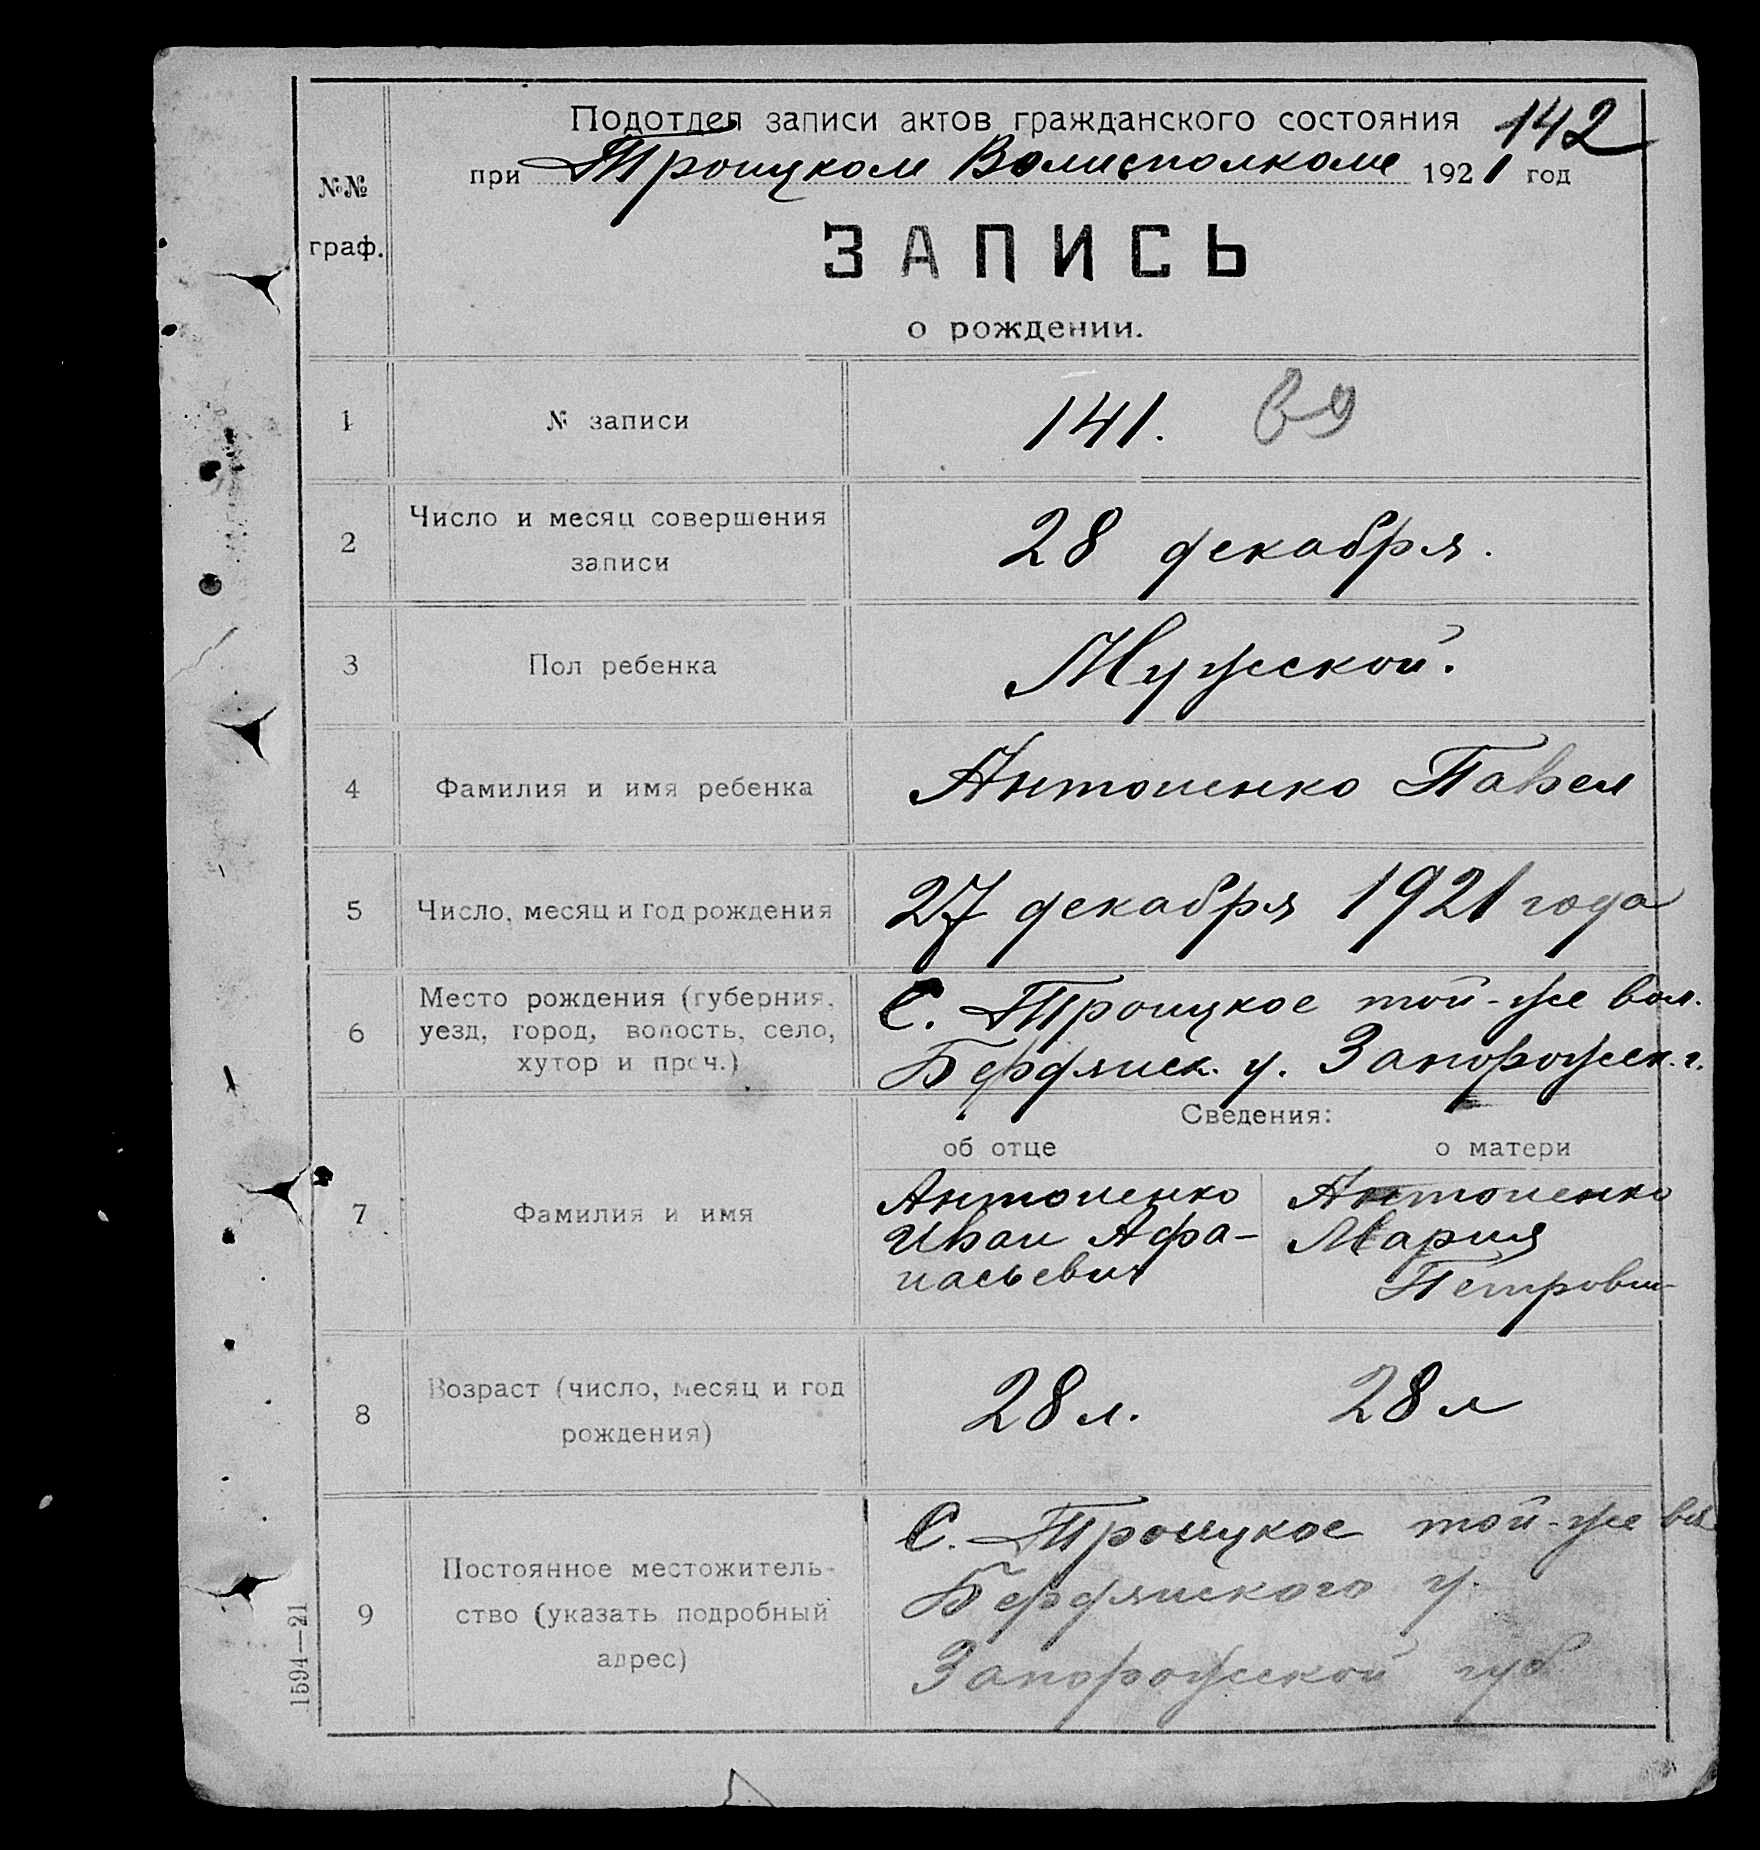 142
Подотдел записи актов гражданского состояния
при Троицком Волисполкоме 1921 год
№№
граф.
ЗАПИСЬ
о рождении.
1 № записи 141.
2 Число и месяц совершения
записи
28 декабря.
3 Пол ребенка Мужской.
4 Фамилия и имя ребенка Антоненко Павел
5 Число, месяц и год рождения 27 декабря 1921 года
6 Место рождения (губерния,
уезд, город, волость, село,
хутор и проч.)
С. Троицкое той-же вол.
Бердянск. у. Запорожск. г.
Сведения:
об отце о матери
7 Фамилия и имя
Антоненко
Иван Афа-
насьевич
Антоненко
Мария
Петровн
8 Возраст (число, месяц и год
рождения)
28 л. 28 л
9 Постоянное местожитель-
ство (указать подробный
адрес)
С. Троицкое той-же вол
Бердянского у.
Запорожской губ
1594—21